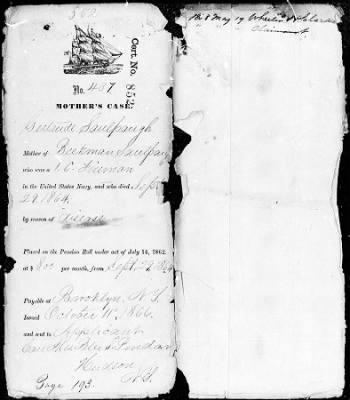 Cert. No. 852
No. 487
MOTHER'S CASE.
Gertrude Saulpaugh
Mother of Beekman Saulpaug
who was a 1. C. Fireman
in the United States Navy, and who died Sept
29. 1864,
by reason of Disease
Placed on the Pension Roll under act of July 14, 1862
at $ 8 00 per month, from Sept. 29, 1864
Payable at Brooklyn, N.Y.
Issued October 11", 1866.
and sent to Applicant
Care
Hudson
N.Y.
Page 193.
May 19